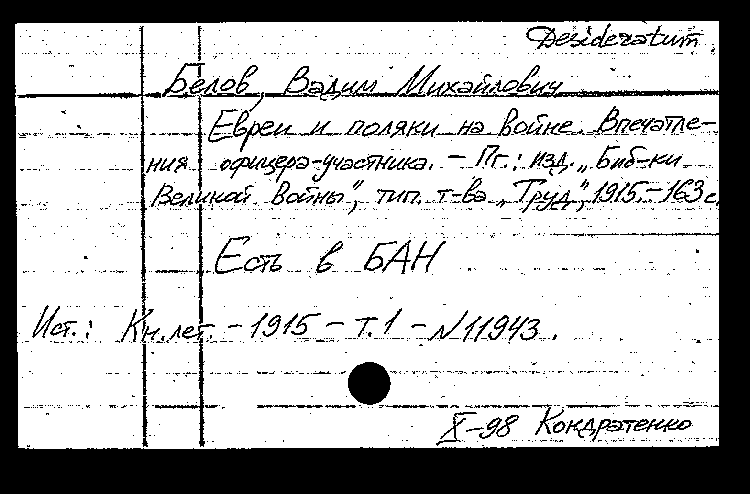 Desideratum.
Белов, Вадим Михайлович
Евреи и поляки на войне. Впечатле-
ния офицера-участника. – Пг.: изд. „Биб-ки
Великой Войны", тип. т-ва „Труд", 1915. – 163 с.
Есть в БАН
Ист.: Кн. лет. – 1915 – Т.1 – N 11943.
X–98 Кондратенко